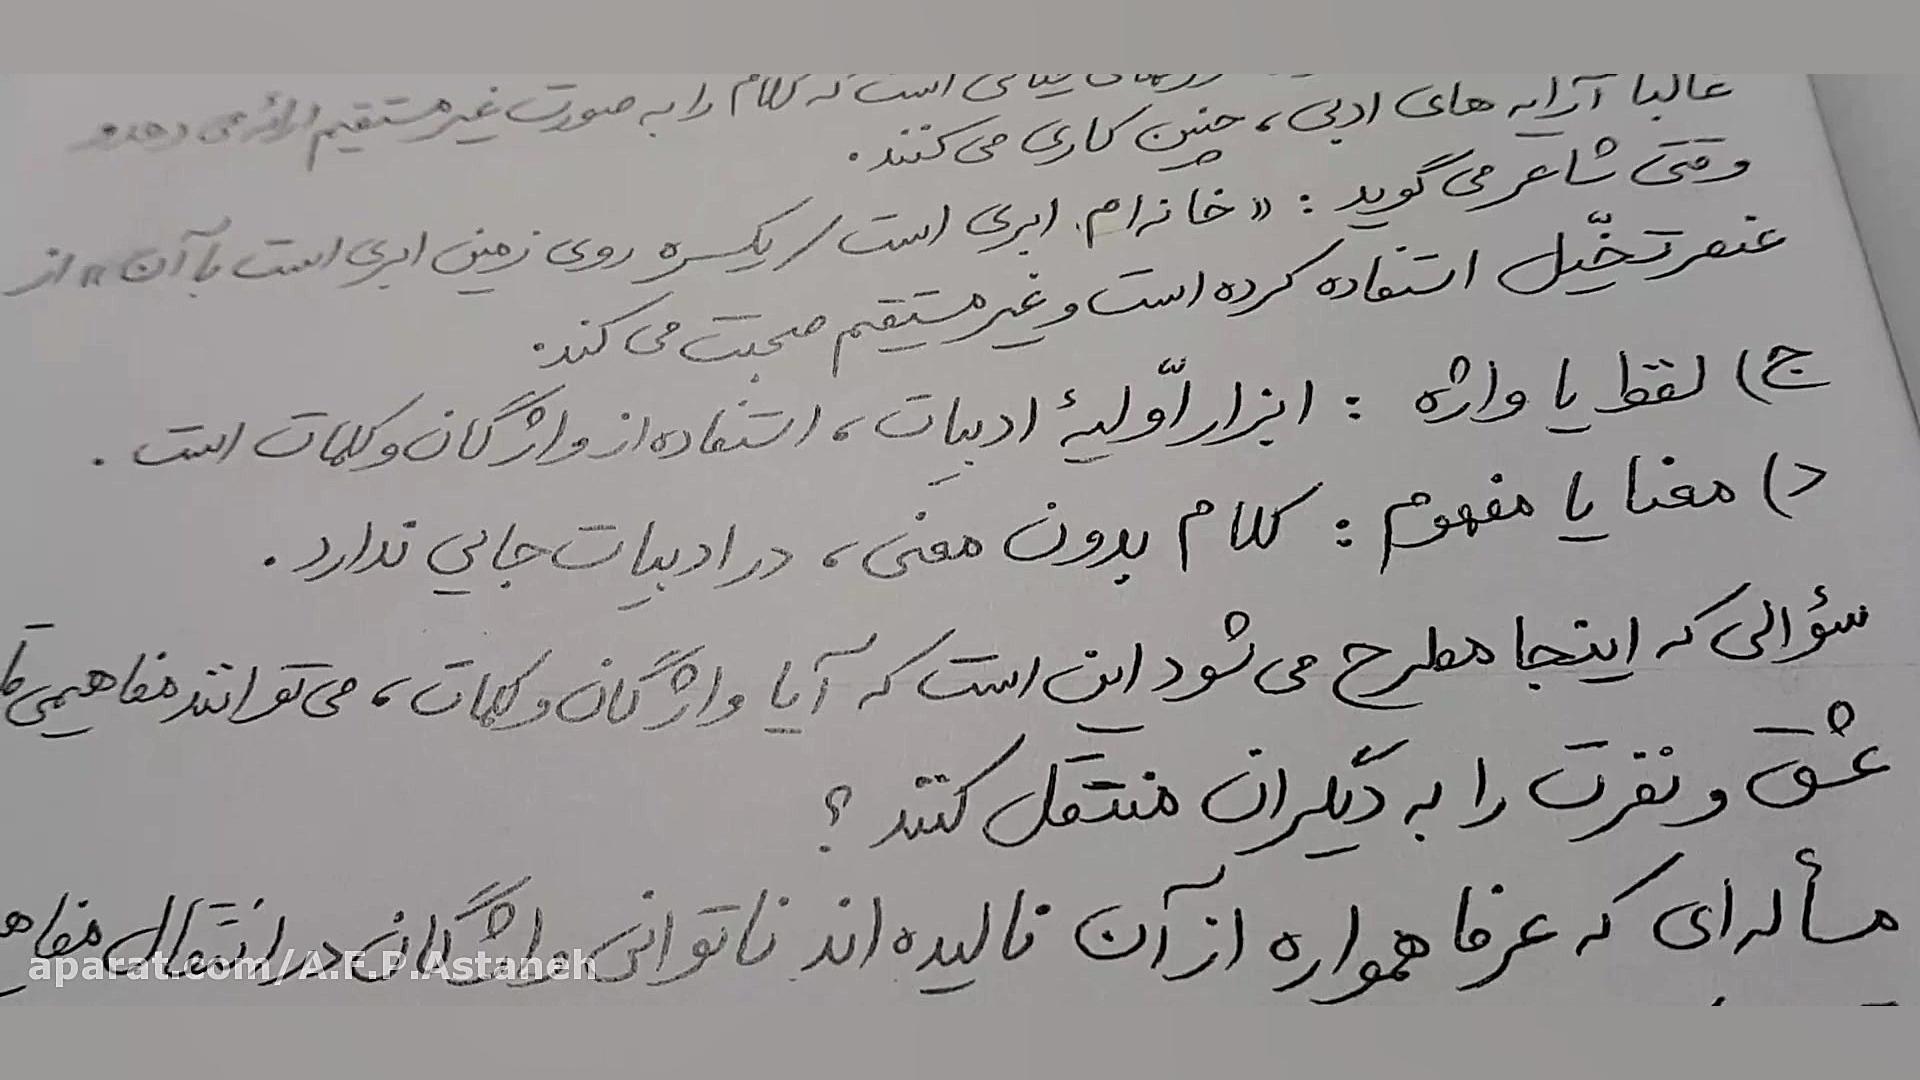 است که کلام را به صورت غیر مستقیم ارائه می دهد و
غالبا آرایه های ادبی، چنین کاری می کنند.
وقتی شاعر می گوید: «خانه ام ابری است / یکسره روی زمین ابری است با آن» از
عنصر تخیّل استفاده کرده است و غیر مستقیم صحبت می کند.
ج) لفظ یا واژه: ابزار اوّلیۀ ادبیات، استفاده از واژگان و کلمات است.
د) معنا یا مفهوم: کلام بدون معنی، در ادبیات جایی ندارد.
سؤالی که اینجا مطرح می شود این است که آیا واژگان و کلمات، می توانند مفاهیمی
عشق و نفرت را به دیگران منتقل کنند؟
مسأله ای که عرفا همواره از آن نالیده اند ناتوانی واژگان در انتقال
aparat.com/A.F.P.Astaneh